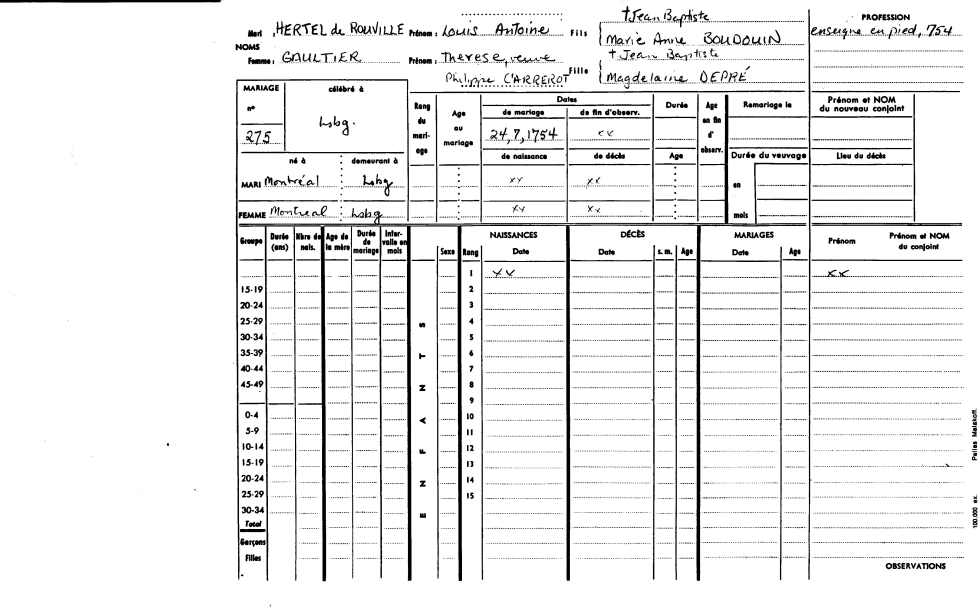 †Jean Baptiste PROFESSION
Mari HERTEL de ROUVILLE Prénom : Louis Antoine Fils Marie Anne BOUDOUIN enseigne en pied, 754
NOMS
Femme : GAULTIER Prénom : Therese, veuve † Jean Baptiste
Philippe CARREROT Fille Magdelaine DEPRÉ
MARIAGE célébré à
nº 275 Lsbg.
Rang du mari-age
Age au mariage
Dates
de mariage de fin d'observ.
24,7,1754 xx
Durée
Age en fin d' observ.
Remariage le
Prénom et NOM du nouveau conjoint
né à demeurant à de naissance de décès Age Durée du veuvage Lieu du décès
MARI Montréal Lsbg xx xx en
FEMME Montreal Lsbg xx xx mois
Groupe Durée (ans) Nbre de nais. Age de la mère Durée de mariage Inter-valle en mois
ENFANTS
Sexe Rang
NAISSANCES Date
DÉCÈS Date s. m. Age
MARIAGES Date Age
Prénom Prénom et NOM du conjoint
1 xx xx
15-19 2
20-24 3
25-29 4
30-34 5
35-39 6
40-44 7
45-49 8
9
0-4 10
5-9 11
10-14 12
15-19 13
20-24 14
25-29 15
30-34
Total
Garçons
Filles
OBSERVATIONS
100.000 ex. Pallas Malakoff.